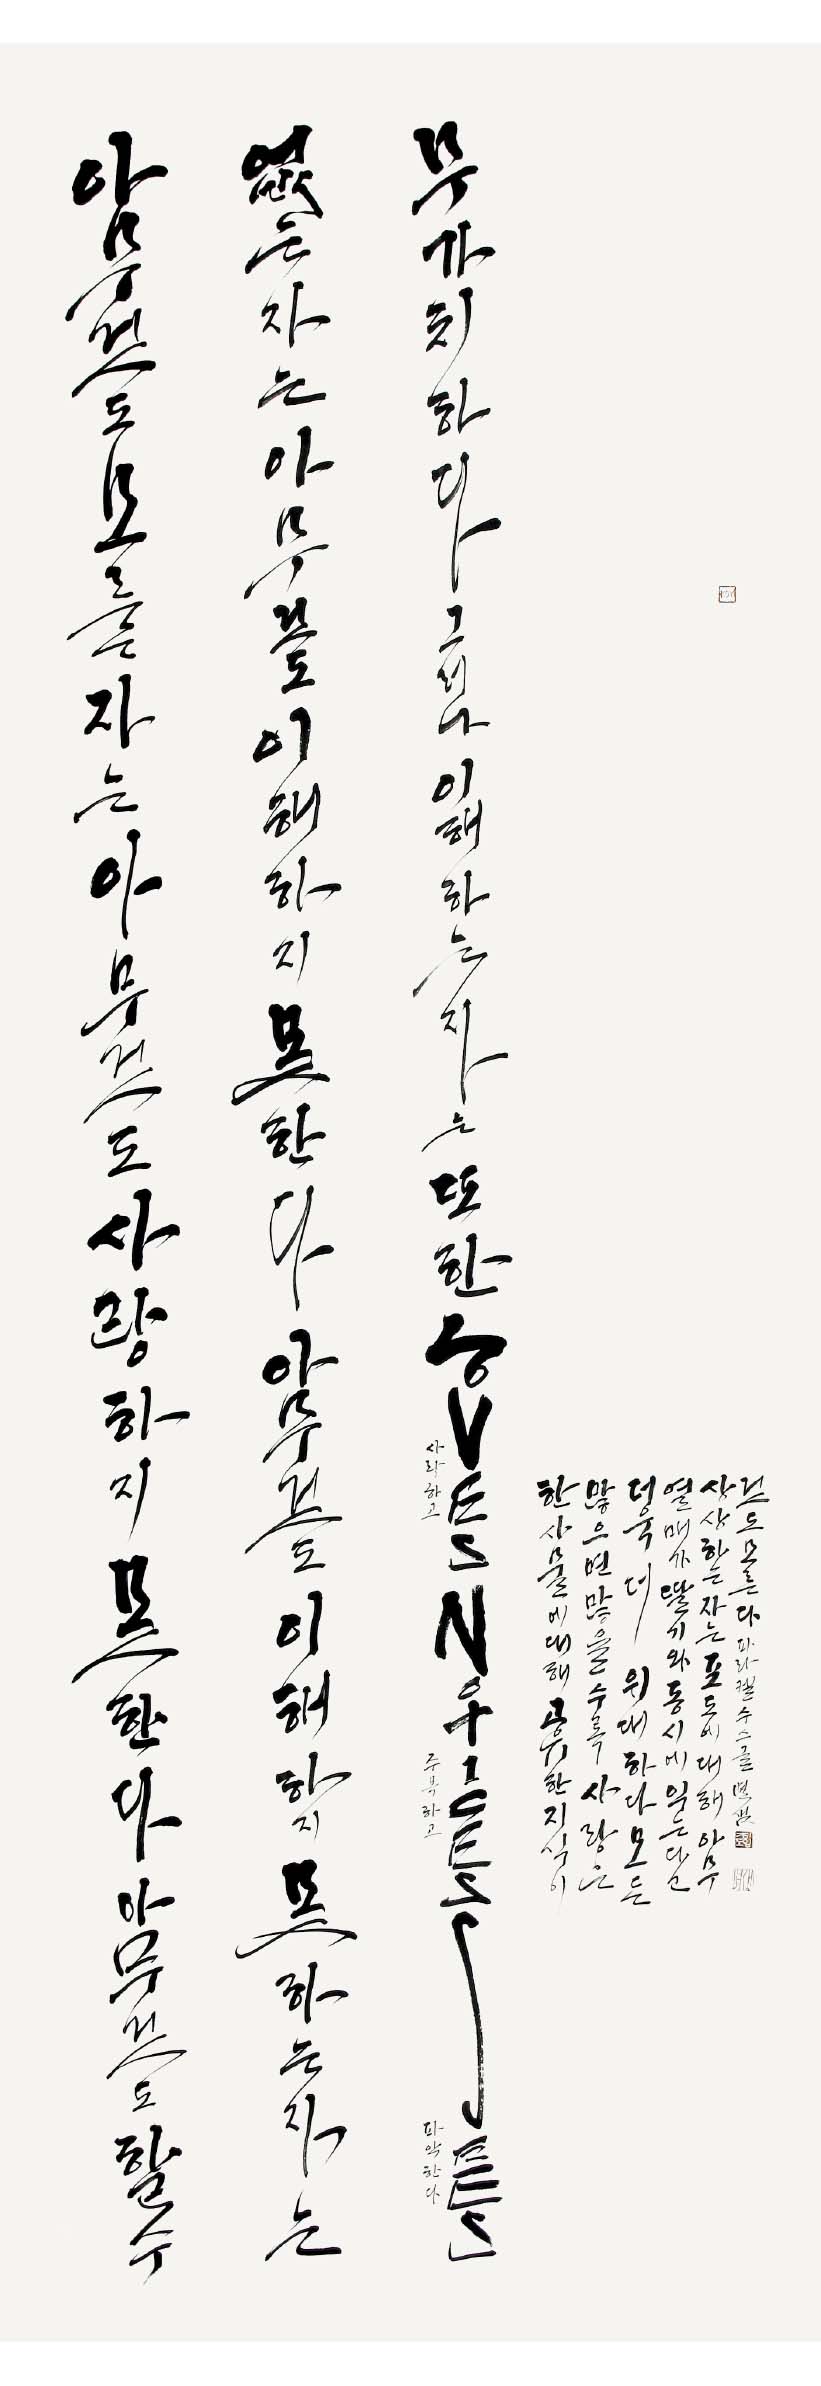 아무것도 모르는 자는 아무것도 사랑하지 못한다 아무것도 할 수
없는 자는 아무것도 이해하지 못한다 아무것도 이해하지 못하는 자는
무가치하다 그러나 이해하는 자는 또한 LOVES NOTICES SEES
사랑하고
주목하고
파악한다
한 사물에 대해 고유한 지식이
많으면 많을수록 사랑은
더욱 더 위대하다 모든
열매가 딸기와 동시에 익는다고
상상하는 자는 포도에 대해 아무
것도 모른다 파라켈수스 글